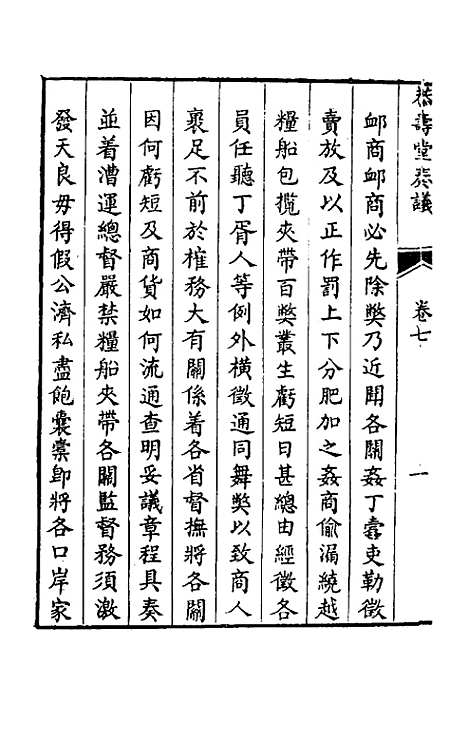 恭壽堂奏議
卷七
一
卹商卹商必先除獘乃近聞各關姦丁蠧吏勒徵
賣放及以正作罰上下分肥加之姦商偷漏繞越
糧船包攬夾帶百獘叢生虧短日甚總由經徵各
員任聽丁胥人等例外橫徵通同舞獘以致商人
裹足不前於榷務大有關係着各省督撫將各關
因何虧短及商貨如何流通查明妥議章程具奏
並着漕運總督嚴禁糧船夾帶各關監督務須激
發天良毋得假公濟私盡飽囊橐即將各口岸家